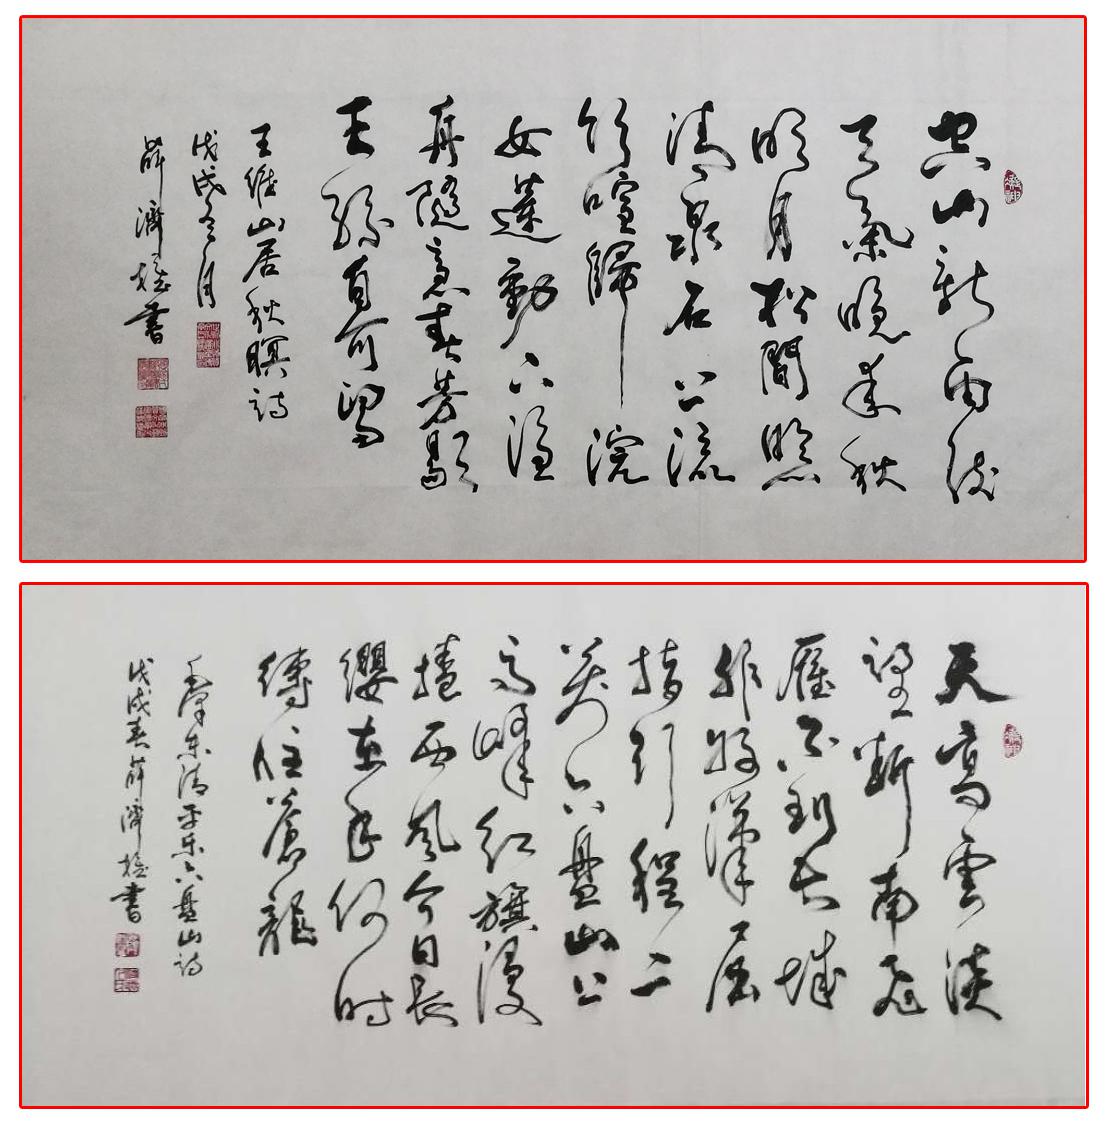 空山新雨後
天氣晚來秋
明月松間照
清泉石上流
竹喧歸浣
女蓮動下漁
舟隨意春芳歇
王孫自可留
王維山居秋暝詩
戊戌冬月
薛濟檤書
天高雲淡
望斷南飛
雁不到長城
非好漢屈
指行程二
萬六盤山上
高峰紅旗漫
捲西風今日長
纓在手何時
縛住蒼龍
毛澤東清平樂六盤山詩
戊戌春薛濟檤書